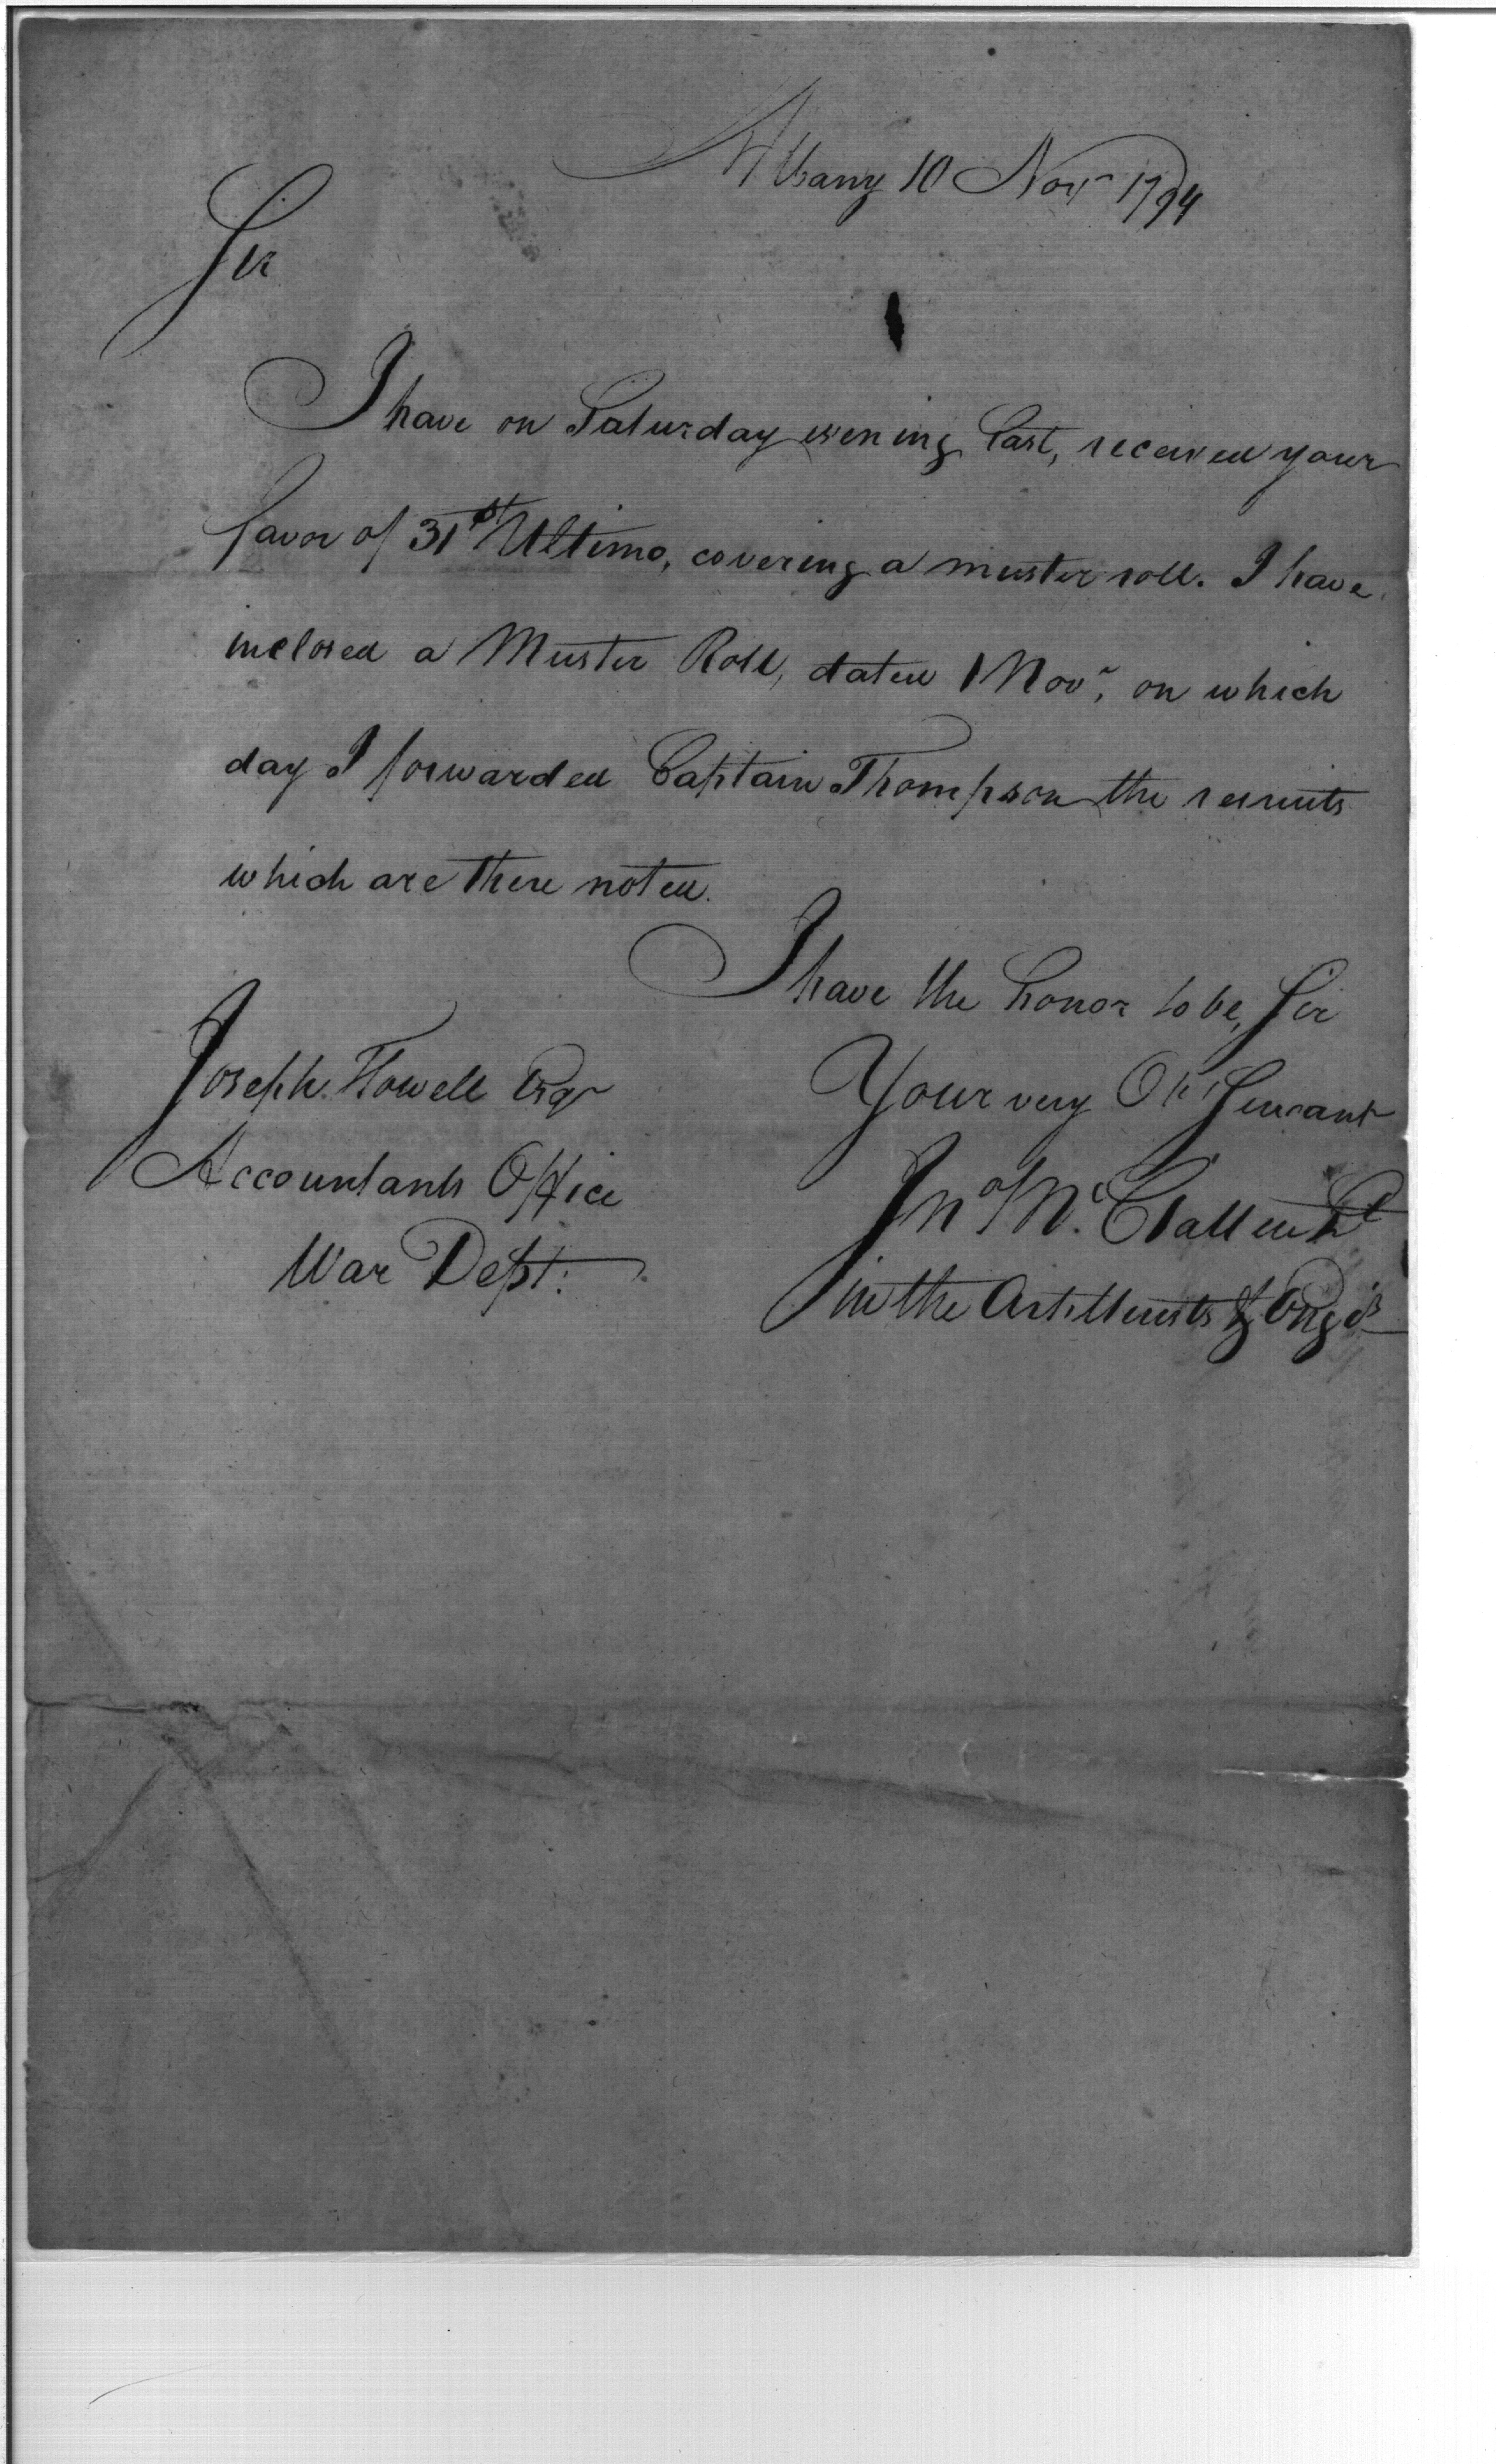 Albany 10 Novr 1794
Sir
I have on Saturday evening last, received your
favor of 31st Ultimo, covering a muster roll. I have
inclosed a Muster Roll, dated 1 Novr, on which
day I forwarded Captain Thompson the recruits
which are there noted.
I have the honor to be, Sir
Joseph Howell Esqr
Your very Ob Servant
Accountants Office
Jno Mc Clallen Lt
War Dept:
in the Artillerists & Engrs